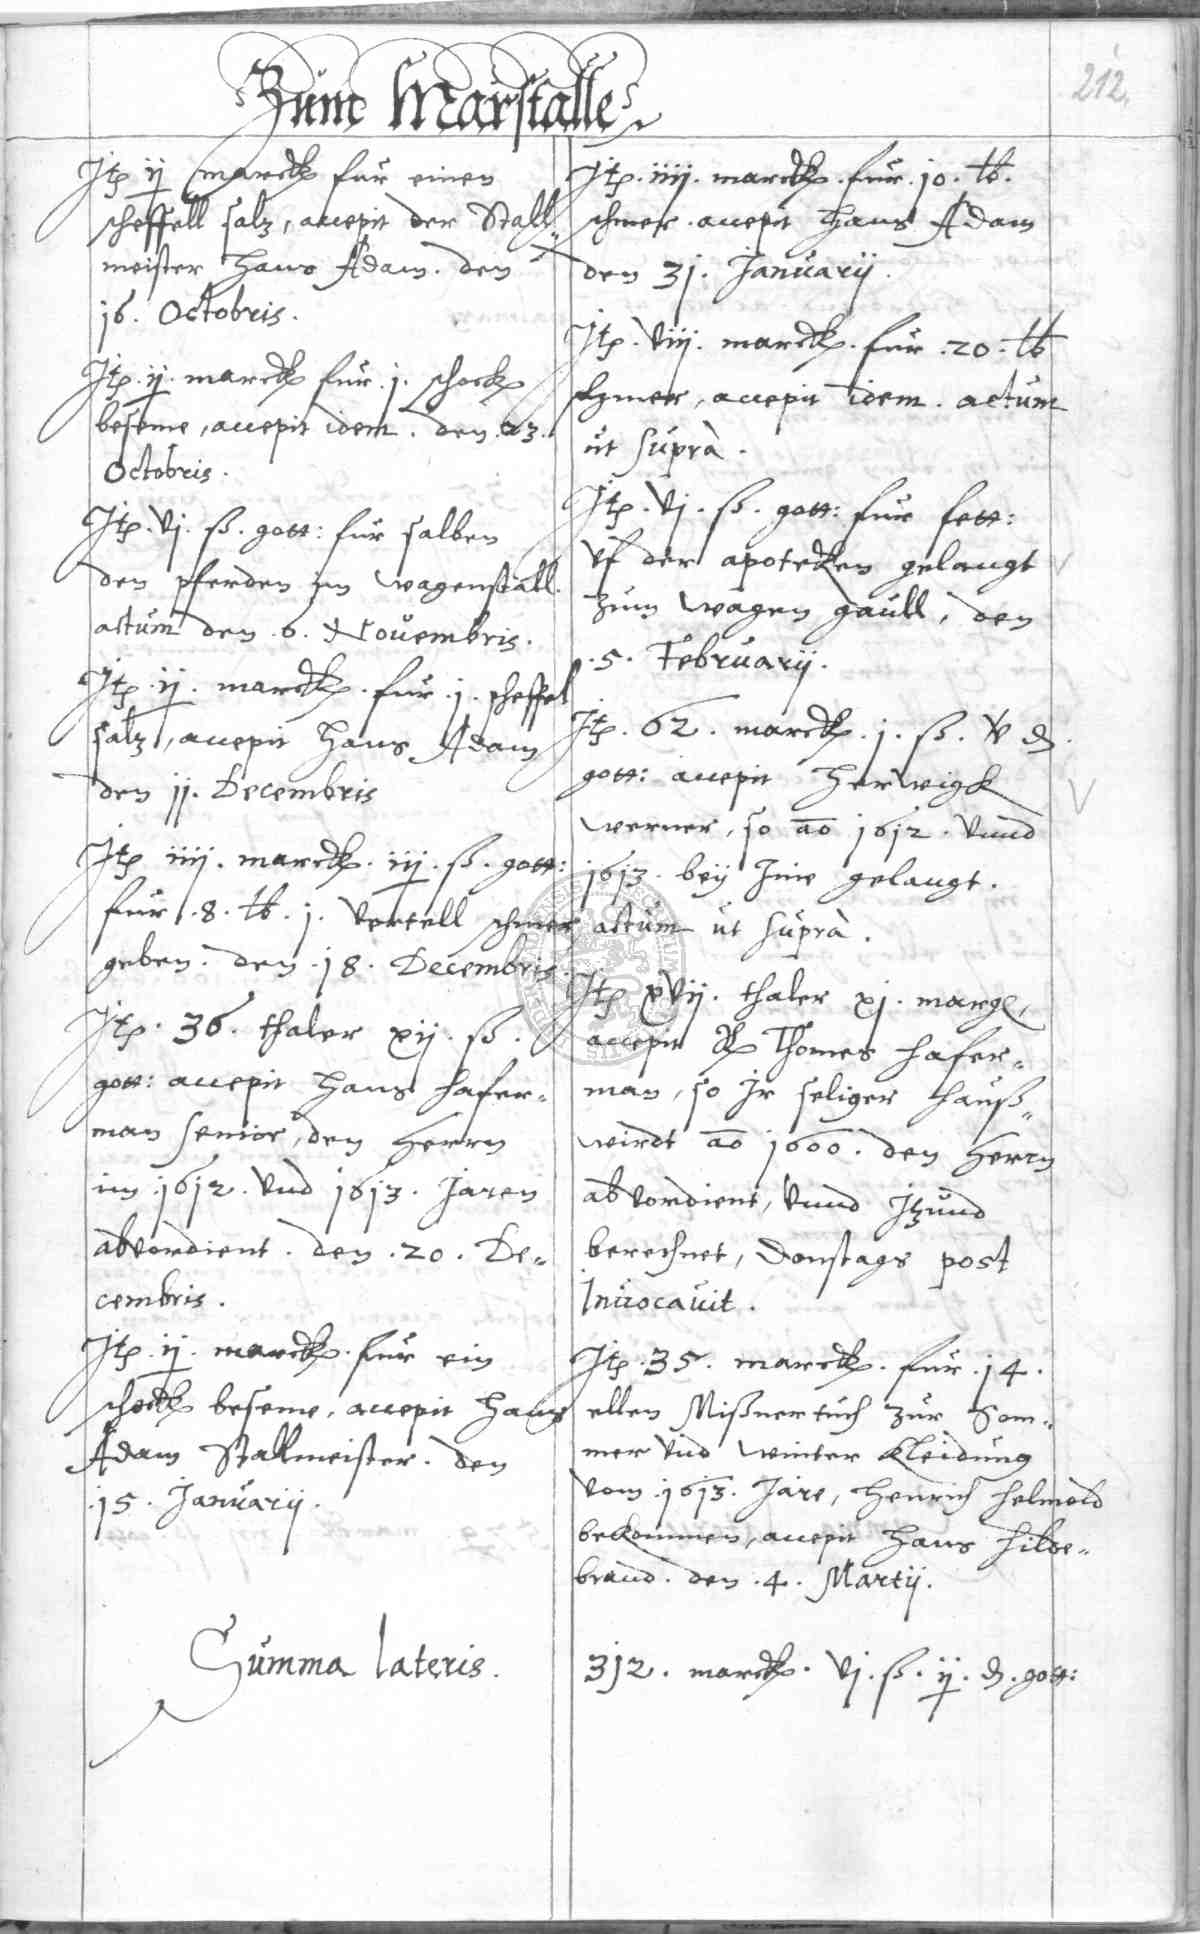 212.
Zum Marstalle
Itp ij marck für einen
scheffell saltz, accepit der Stall-
meister Hans Adam. den
16. Octobris.
Itp. ij. marck für .j. schock
beseme, accepit idem. den. 23.
Octobris.
Itp. vj. ß. gott: für salben
den pferden im wagenstall.
actum den .6. Novembris.
Itp. ij. marck. für .j. scheffel
saltz, accepit Hans Adam
den jj. Decembris
Itp iiij. marck. iij. ß. gott:
für .8. lb. j. vertell schmer
geben. den .18. Decembris.
Itp. 36. thaler xij. ß.
gott: accepit Hans Hafer-
man senior, den Herrn
im .1612. vnd 1613. Jaren
abvordient. den .20. De-
cembris.
Itp. ij. marck. für ein
schock beseme, accepit Hans
Adam Stallmeister. den
.15. Januarij.
Itp. iiij. marck. für .10. lb.
schmer. accepit Hans Adam
den 31. Januarij.
Itp. viij. marck. für .20. lb
schmer, accepit idem. actum
ut suprà.
Itp. vj. ß. gott: für fett:
vf der apotecken gelangt
zum wagen gaull, den
.5. Februarij.
Itp. 62. marck. j. ß. v d.
gott: accepit Herwigk
werner, so ao 1612. vnnd
1613. beij Ime gelangt.
actum ut suprà.
Itp xvij. thaler xj. margl,
accepit Thomes Hafer-
man, so Ir seliger hauß-
wirdt ao 1600. den Herrn
abvordient, vnnd Itzund
berechnet, Donstags post
Invocavit.
Itp. 35. marck. für .14.
ellen Mißnertuch zur Som-
mer vnd winter kleidung
vom .1613. Jare, Henrich Helmold
bekommen, accepit Hans Hilde-
brand. den .4. Martij.
Summa lateris. 312. marck. vj. ß. ij. d. gott: